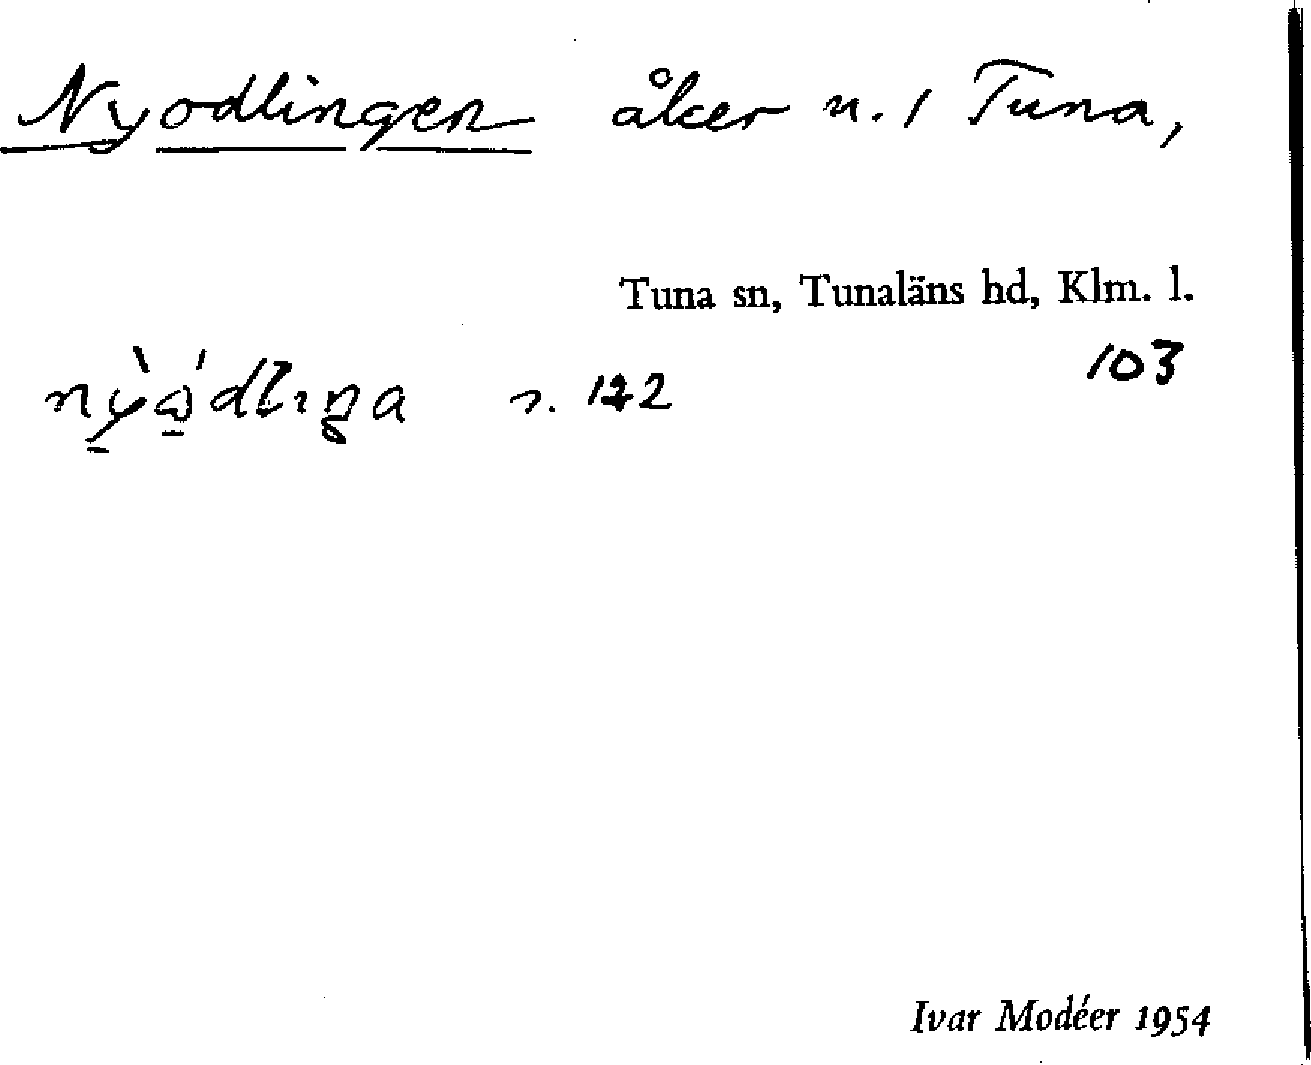 Nyodlingen åker n. 1 Tuna,
Tuna sn, Tunaläns hd, Klm. l.
103
nỳódlıŋa s. 122
Ivar Modéer 1954